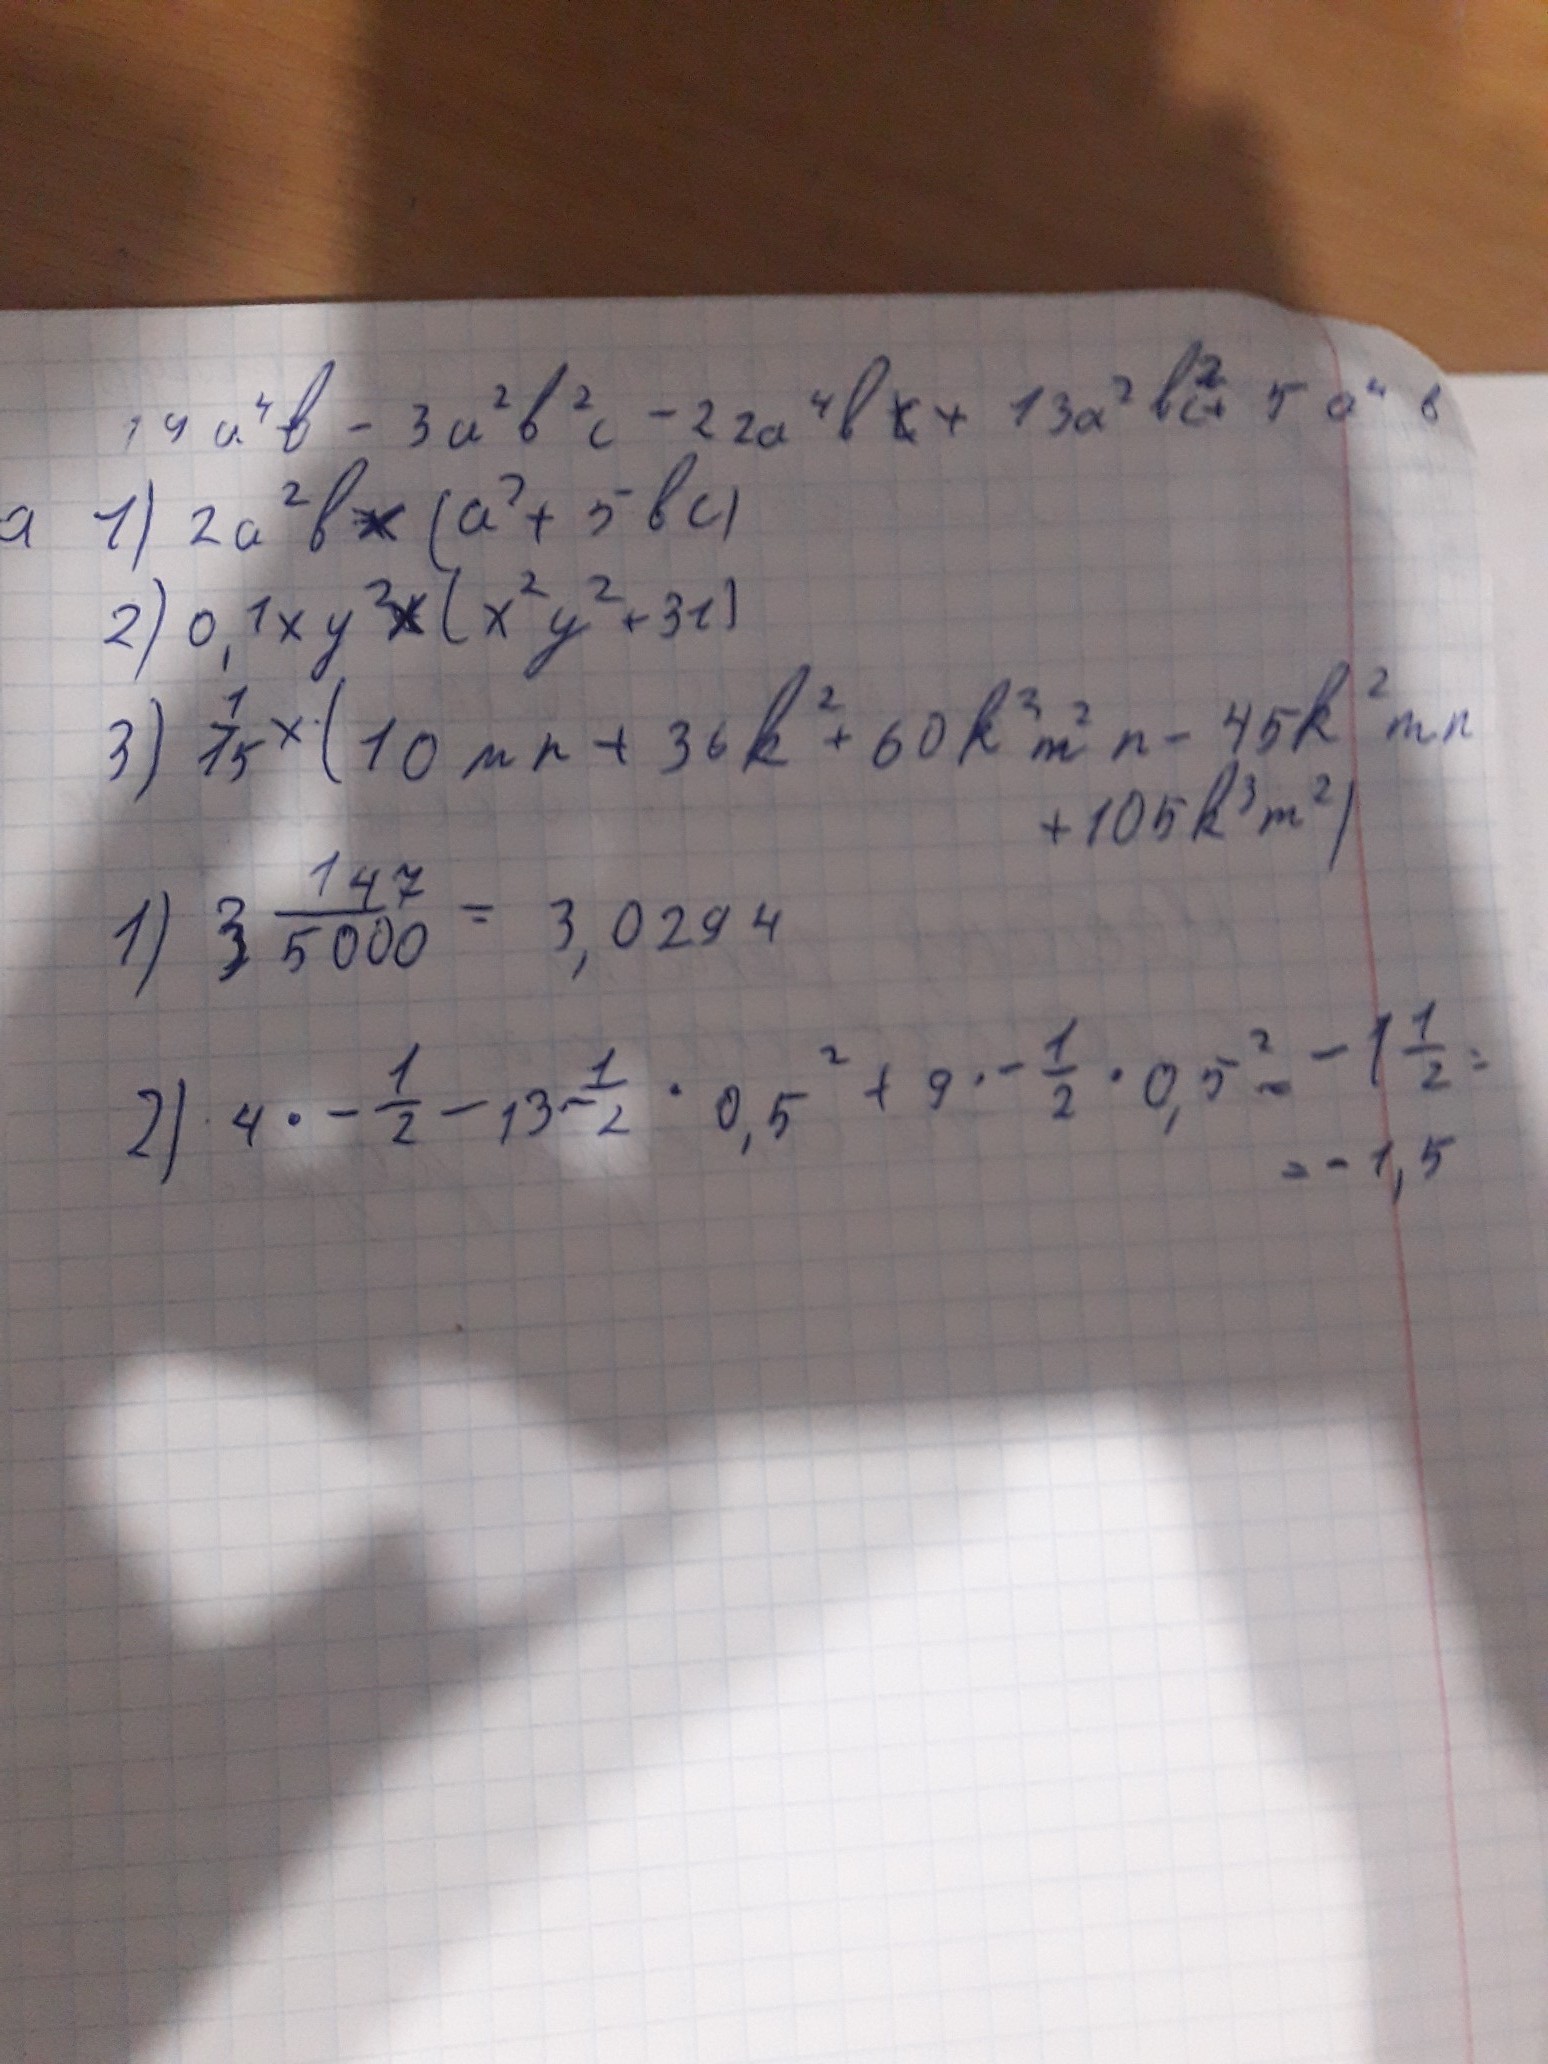 19a⁴b - 3a²b²c - 22a⁴b + 13a²b²c + 5a⁴b
а 1) 2a²b × (a² + 5bc)
2) 0,1xy² × (x²y² + 31)
3) 1/15 × (10mn + 36k² + 60k³m²n - 45k²mn
+ 105k³m²)
1) 3 147/5000 = 3,0294
2) 4 · - 1/2 - 13 - 1/2 · 0,5² + 9 · - 1/2 · 0,5² = - 1 1/2 =
= - 1,5